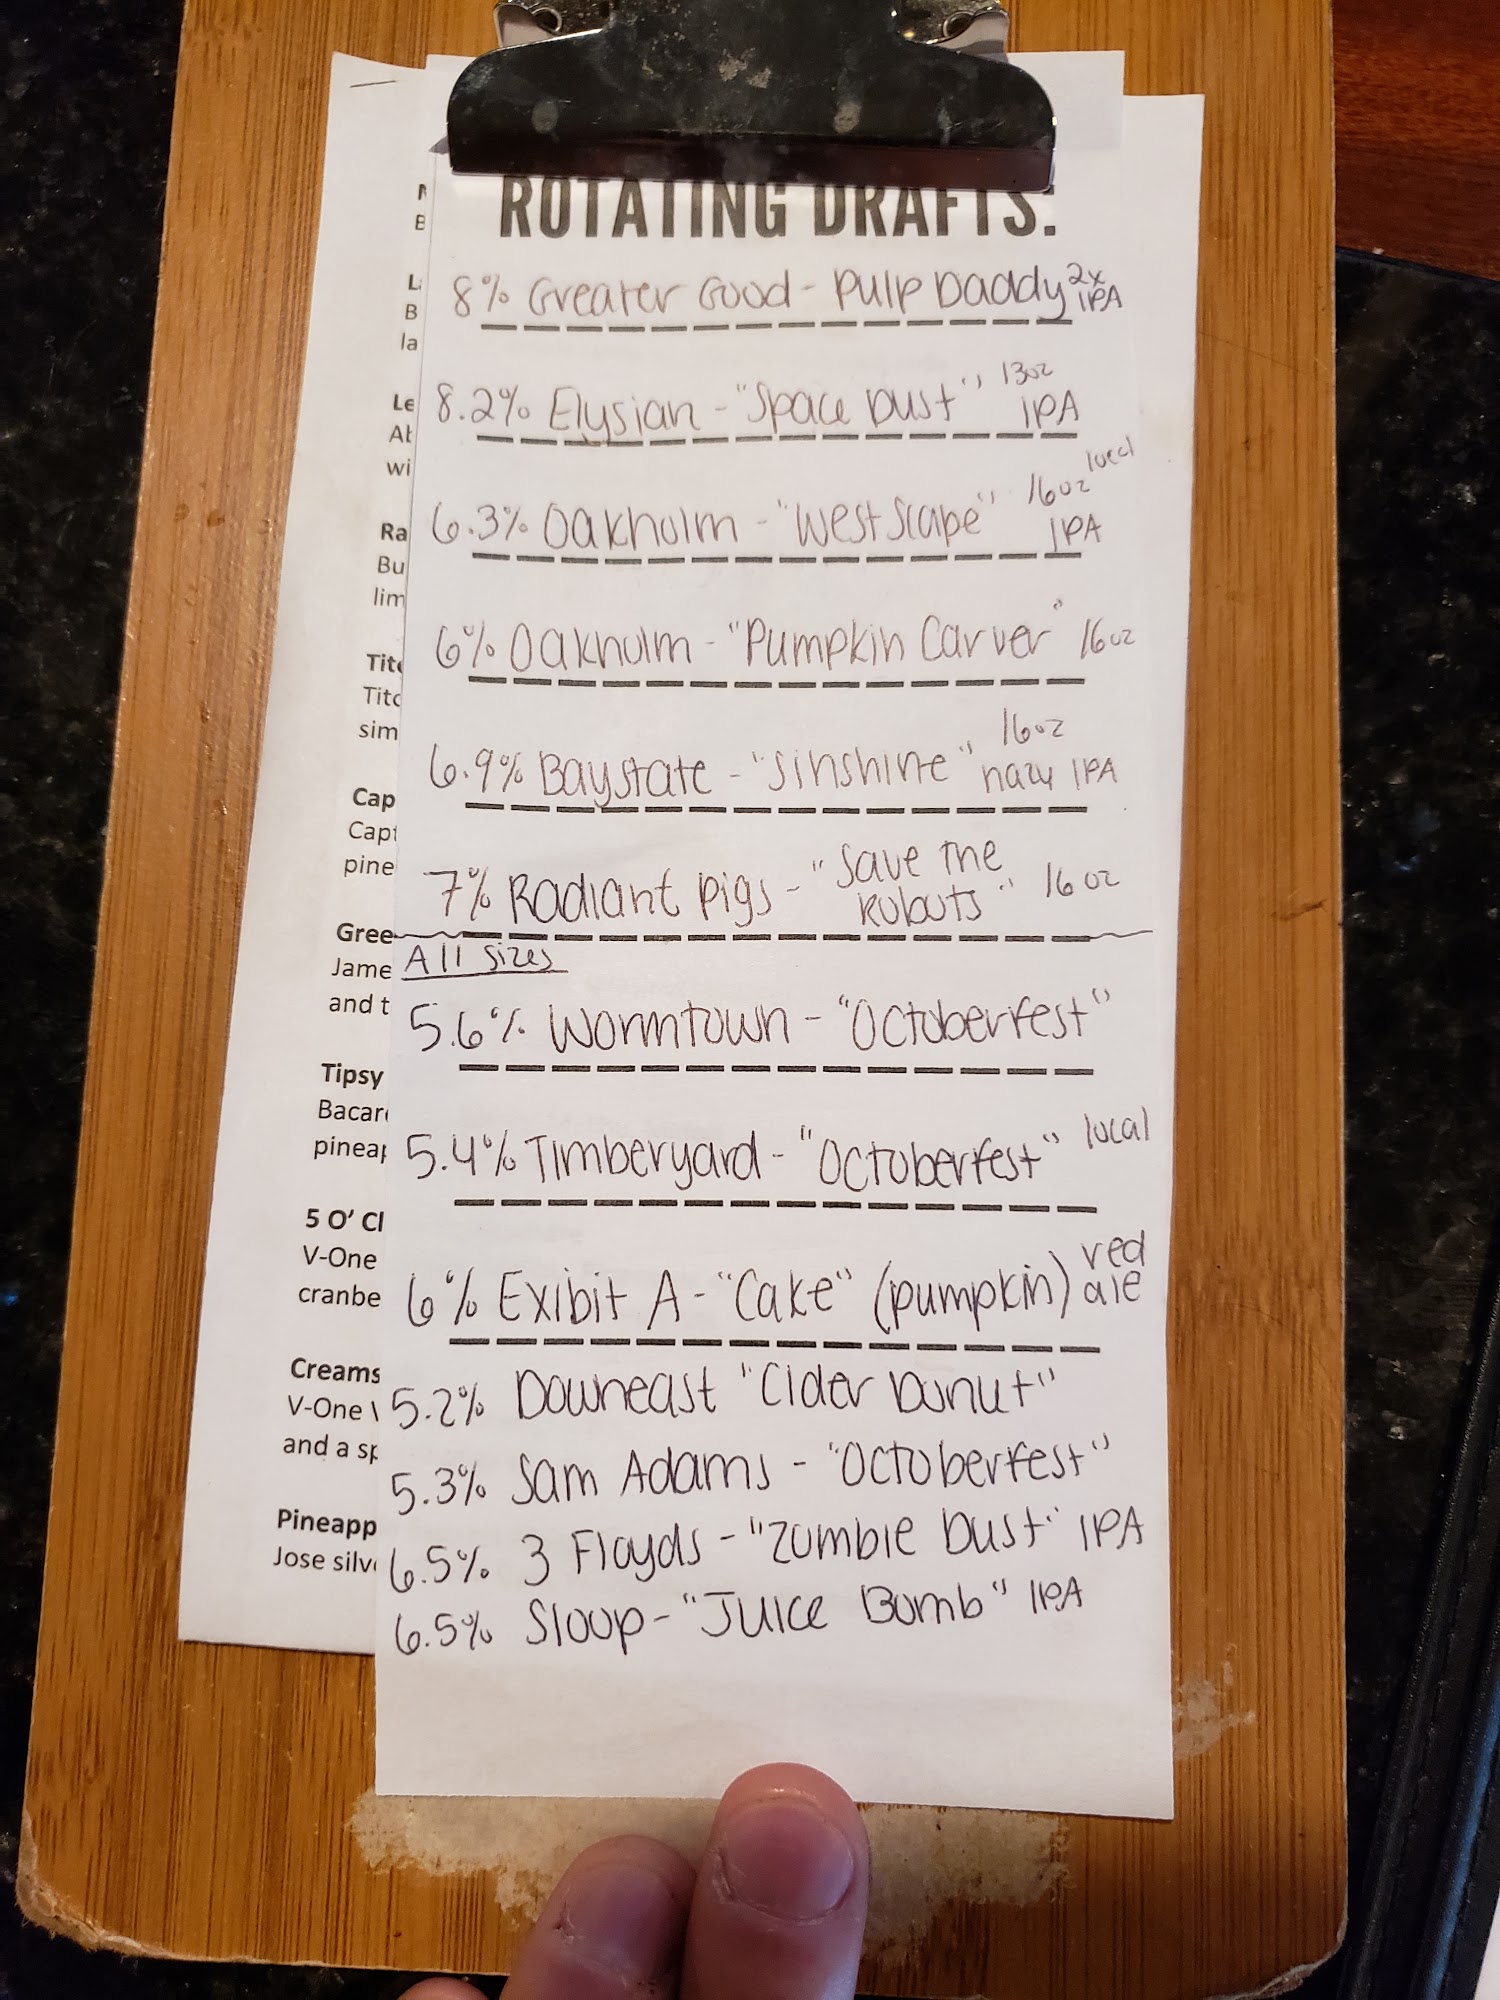 ROTATING DRAFTS:
8% Greater Good - Pulp Daddy 2x IPA
8.2% Elysian - "Space Dust" 13oz IPA
6.3% Oakholm - "West Scape" 16oz local IPA
6% Oakholm - "Pumpkin Carver" 16oz
6.9% Baystate - "Sinshine" 16oz hazy IPA
7% Radiant Pigs - "Save the Robots" 16oz
All Sizes
5.6% Wormtown - "Octoberfest"
5.4% Timberyard - "Octoberfest" local
6% Exibit A - "Cake" (pumpkin) red ale
5.2% Downeast "Cider Donut"
5.3% Sam Adams - "Octoberfest"
6.5% 3 Floyds - "Zombie Dust" IPA
6.5% Sloop - "Juice Bomb" IPA
B
la
Le
wi
Ra
Bu
lim
Tito
sim
Cap
Capt
pine
Gree
Jame
and t
Tipsy
Bacar
pineap
5 O' Cl
V-One
cranbe
Creams
V-One
and a sp
Pineapp
Jose silv